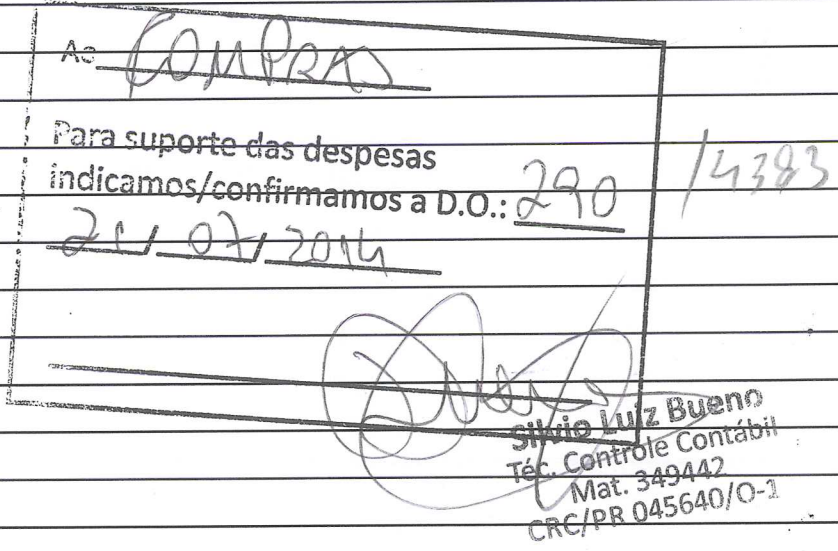 Ao COMPRAS
Para suporte das despesas
indicamos/confirmamos a D.O.: 290 /4383
21/07/2014
Silvio Luiz Bueno
Téc. Controle Contábil
Mat. 349442
CRC/PR 045640/O-1